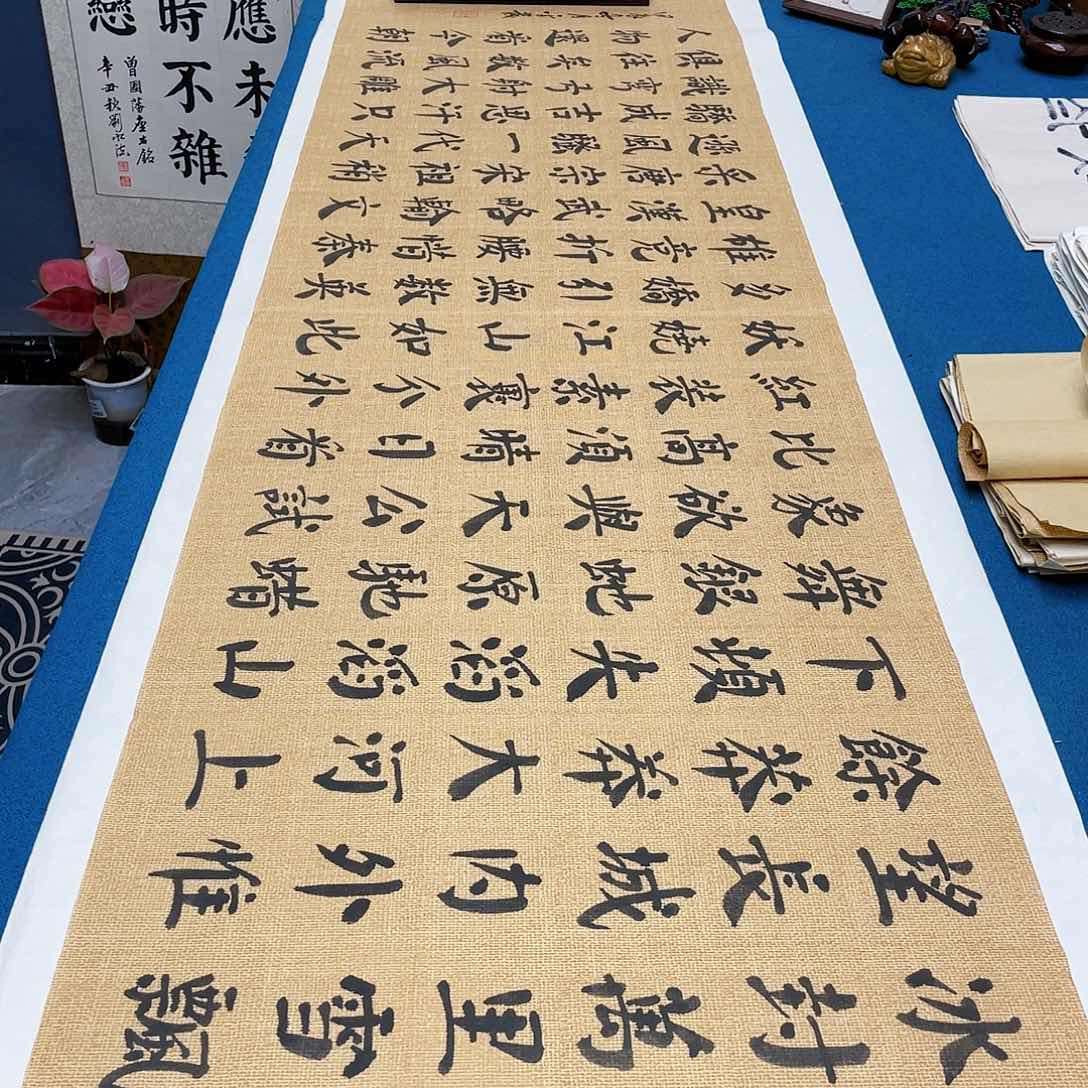 冰封萬里雪飄
望長城內外惟
餘莽莽大河上
下頓失滔滔山
舞銀蛇原馳蜡
象欲與天公試
比高須晴日看
紅裝素裹分外
妖嬈江山如此
多嬌引無數英
雄竟折腰惜秦
皇漢武略輸文
采唐宗宋祖稍
遜風騷一代天
驕成吉思汗只
識彎弓射大雕
俱往矣數風流
人物還看今朝
應未
時不雜
戀
曾國藩座右銘
辛丑秋劉